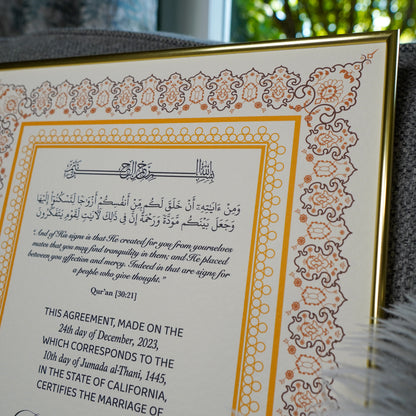 بسم الله الرحمن الرحيم
وَمِنْ ءَايَٰتِهِۦٓ أَنْ خَلَقَ لَكُم مِّنْ أَنفُسِكُمْ أَزْوَٰجًا لِّتَسْكُنُوٓا۟ إِلَيْهَا
وَجَعَلَ بَيْنَكُم مَّوَدَّةً وَرَحْمَةً ۚ إِنَّ فِى ذَٰلِكَ لَءَايَٰتٍ لِّقَوْمٍ يَتَفَكَّرُونَ
"And of His signs is that He created for you from yourselves
mates that you may find tranquility in them; and He placed
between you affection and mercy. Indeed in that are signs for
a people who give thought."
Qur'an [30:21]
THIS AGREEMENT, MADE ON THE
24th day of December, 2023,
WHICH CORRESPONDS TO THE
10th day of Jumada al-Thani, 1445,
IN THE STATE OF CALIFORNIA,
CERTIFIES THE MARRIAGE OF